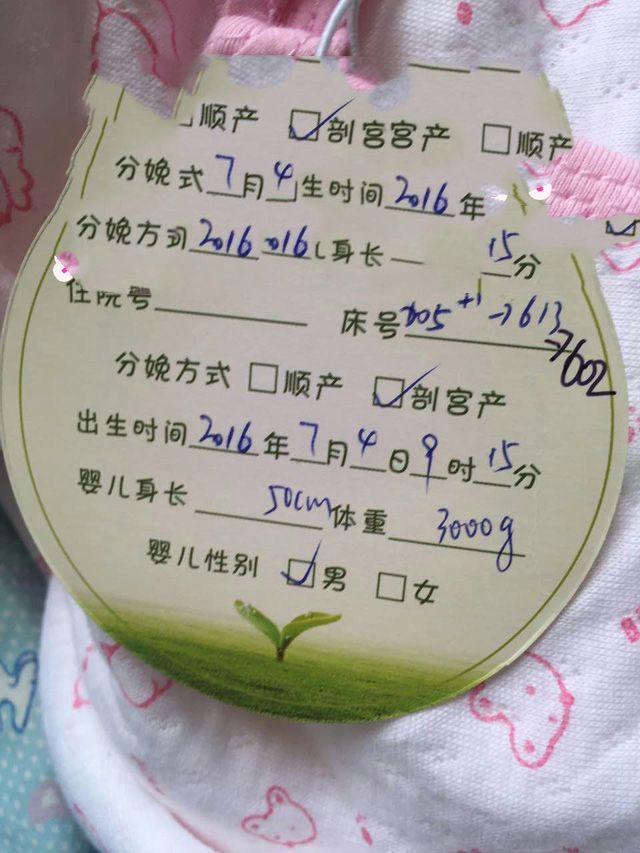 顺产 ☑剖宫宫产 □顺产
分娩式 7月4 生时间 2016年
分娩方 2016 016 身长 15分
住院号 床号 +1→613
→602
分娩方式 □顺产 ☑剖宫产
出生时间 2016年7月4日9时15分
婴儿身长 50cm 体重 3000g
婴儿性别 ☑男 □女